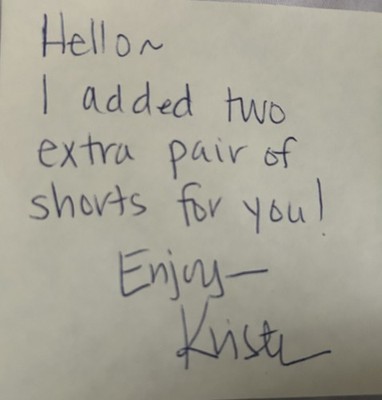 Hello~
I added two
extra pair of
shorts for you!
Enjoy—